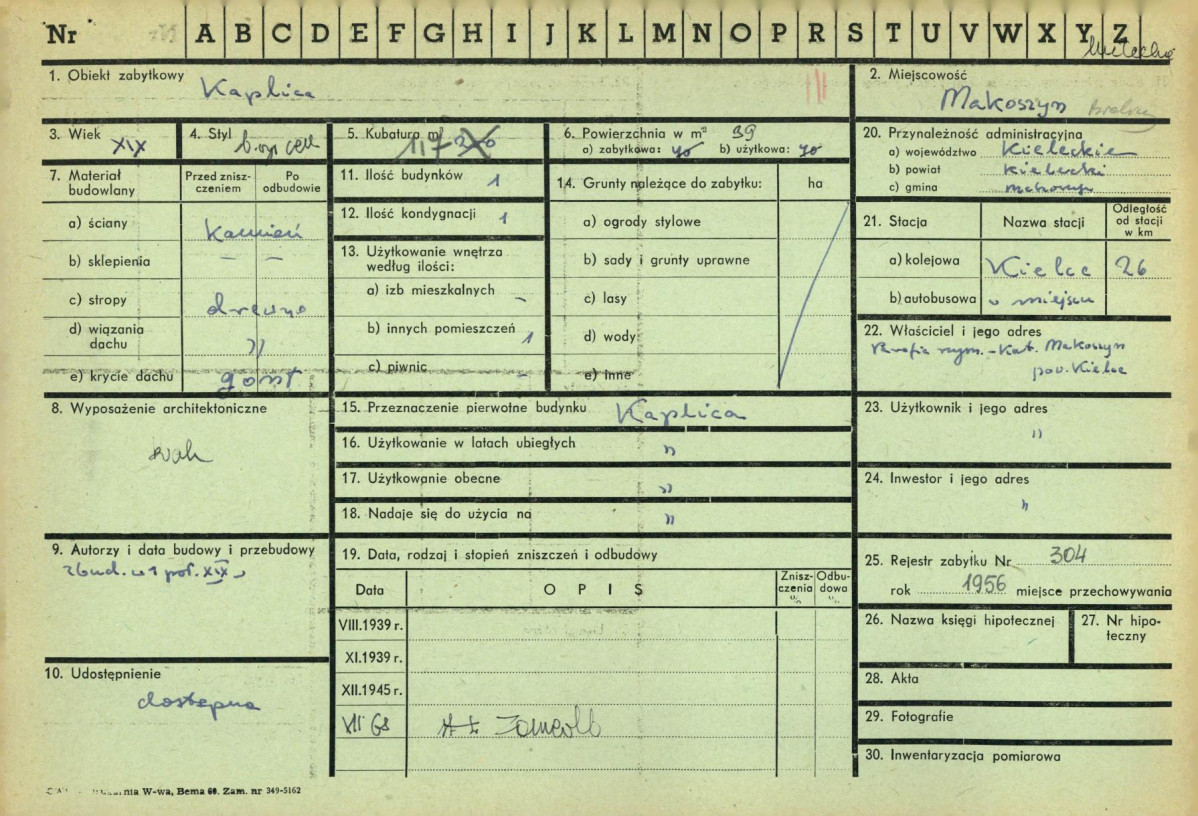 Nr A B C D E F G H I J K L M N O P R S T U V W X Y Z
1. Obiekt zabytkowy Kaplica
2. Miejscowość Makoszyn
3. Wiek XIX
4. Styl
5. Kubatura m³ 117
6. Powierzchnia w m² 39
a) zabytkowa: b) użytkowa:
20. Przynależność administracyjna
a) województwo Kieleckie
b) powiat Kielecki
c) gmina Makoszyn
7. Materiał budowlany
Przed zniszczeniem
Po odbudowie
a) ściany Kamień
b) sklepienia – –
c) stropy drewno
d) wiązania dachu "
e) krycie dachu gont
11. Ilość budynków 1
12. Ilość kondygnacji 1
13. Użytkowanie wnętrza według ilości:
a) izb mieszkalnych -
b) innych pomieszczeń 1
c) piwnic -
14. Grunty należące do zabytku: ha
a) ogrody stylowe
b) sady i grunty uprawne
c) lasy
d) wody
e) inne
21. Stacja Nazwa stacji Odległość od stacji w km
a) kolejowa Kielce 26
b) autobusowa w miejscu
22. Właściciel i jego adres
Parafia rzym.-Kat. Makoszyn
pow. Kielce
8. Wyposażenie architektoniczne
brak
15. Przeznaczenie pierwotne budynku Kaplica
16. Użytkowanie w latach ubiegłych "
17. Użytkowanie obecne "
18. Nadaje się do użycia na "
23. Użytkownik i jego adres
"
24. Inwestor i jego adres
"
9. Autorzy i data budowy i przebudowy
zbud. w 1 poł. XIX w
19. Data, rodzaj i stopień zniszczeń i odbudowy
Data OPIS Zniszczenia % Odbudowa %
VIII.1939 r.
XI.1939 r.
XII.1945 r.
VII 68
25. Rejestr zabytku Nr 304
rok 1956 miejsce przechowywania
26. Nazwa księgi hipotecznej
27. Nr hipoteczny
10. Udostępnienie
dostępna
28. Akta
29. Fotografie
30. Inwentaryzacja pomiarowa
W-wa, Bema 60. Zam. nr 349-5162